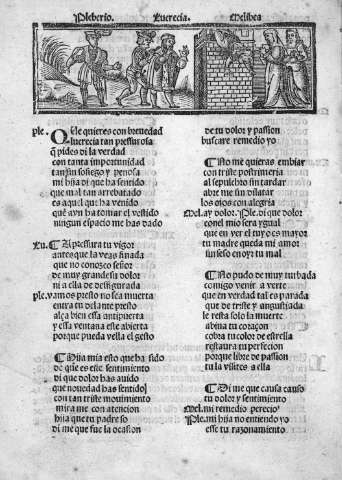 Pleberio. Lucrecia. Melibea
ple. Que le quieres con breuedad
lucrecia tan pressurosa
q̃ pides di la verdad
con tanta importunidad
tan sin sosiego y penosa
mi hija di que ha sentido
que mal tan arrebatado
es aquel que ha venido
quẽ aun ha tomar el vestido
ningun espacio me has dado
Lu. ¶ Apressura tu vigor
antes que la veas finada
que no conozco señor
de muy grande su dolor
ni a ella de desfigurada
ple. vamos presto no sea muerta
entra en delante presto
alça bien essa antipuerta
y essa ventana este abierta
porque pueda vella el gesto
¶ Hija mia esto que ha sido
de que es este sentimiento
di que dolor has auido
que nouedad has sentido
con tan triste mouimiento
mira me con atencion
hija que tu padre so
di me que fue la ocasion
de tu dolor y passion
buscare remedio yo
¶ No me quieras embiar
con triste postrimeria
al sepulchro sin tardar
abre me sin dilatar
los ojos con alegria
Mel. ay dolor. Ple. di que dolor
con el mio sera ygual
que en ver el tuyo es mayor
tu madre queda mi amor
sin seso en oyr tu mal
¶ No pudo de muy turbada
comigo venir a verte
que en verdad tal es parada
que de triste y angustiada
le resta solo la muerte
abiua tu coraçon
cobra tu color de estrella
restaura tu perfecion
porque libre de passion
tu la visites a ella
¶ Di me que causa causo
tu dolor y sentimiento
Mel. mi remedio perecio
Ple. mi hija no entiendo yo
esse tu razonamiento